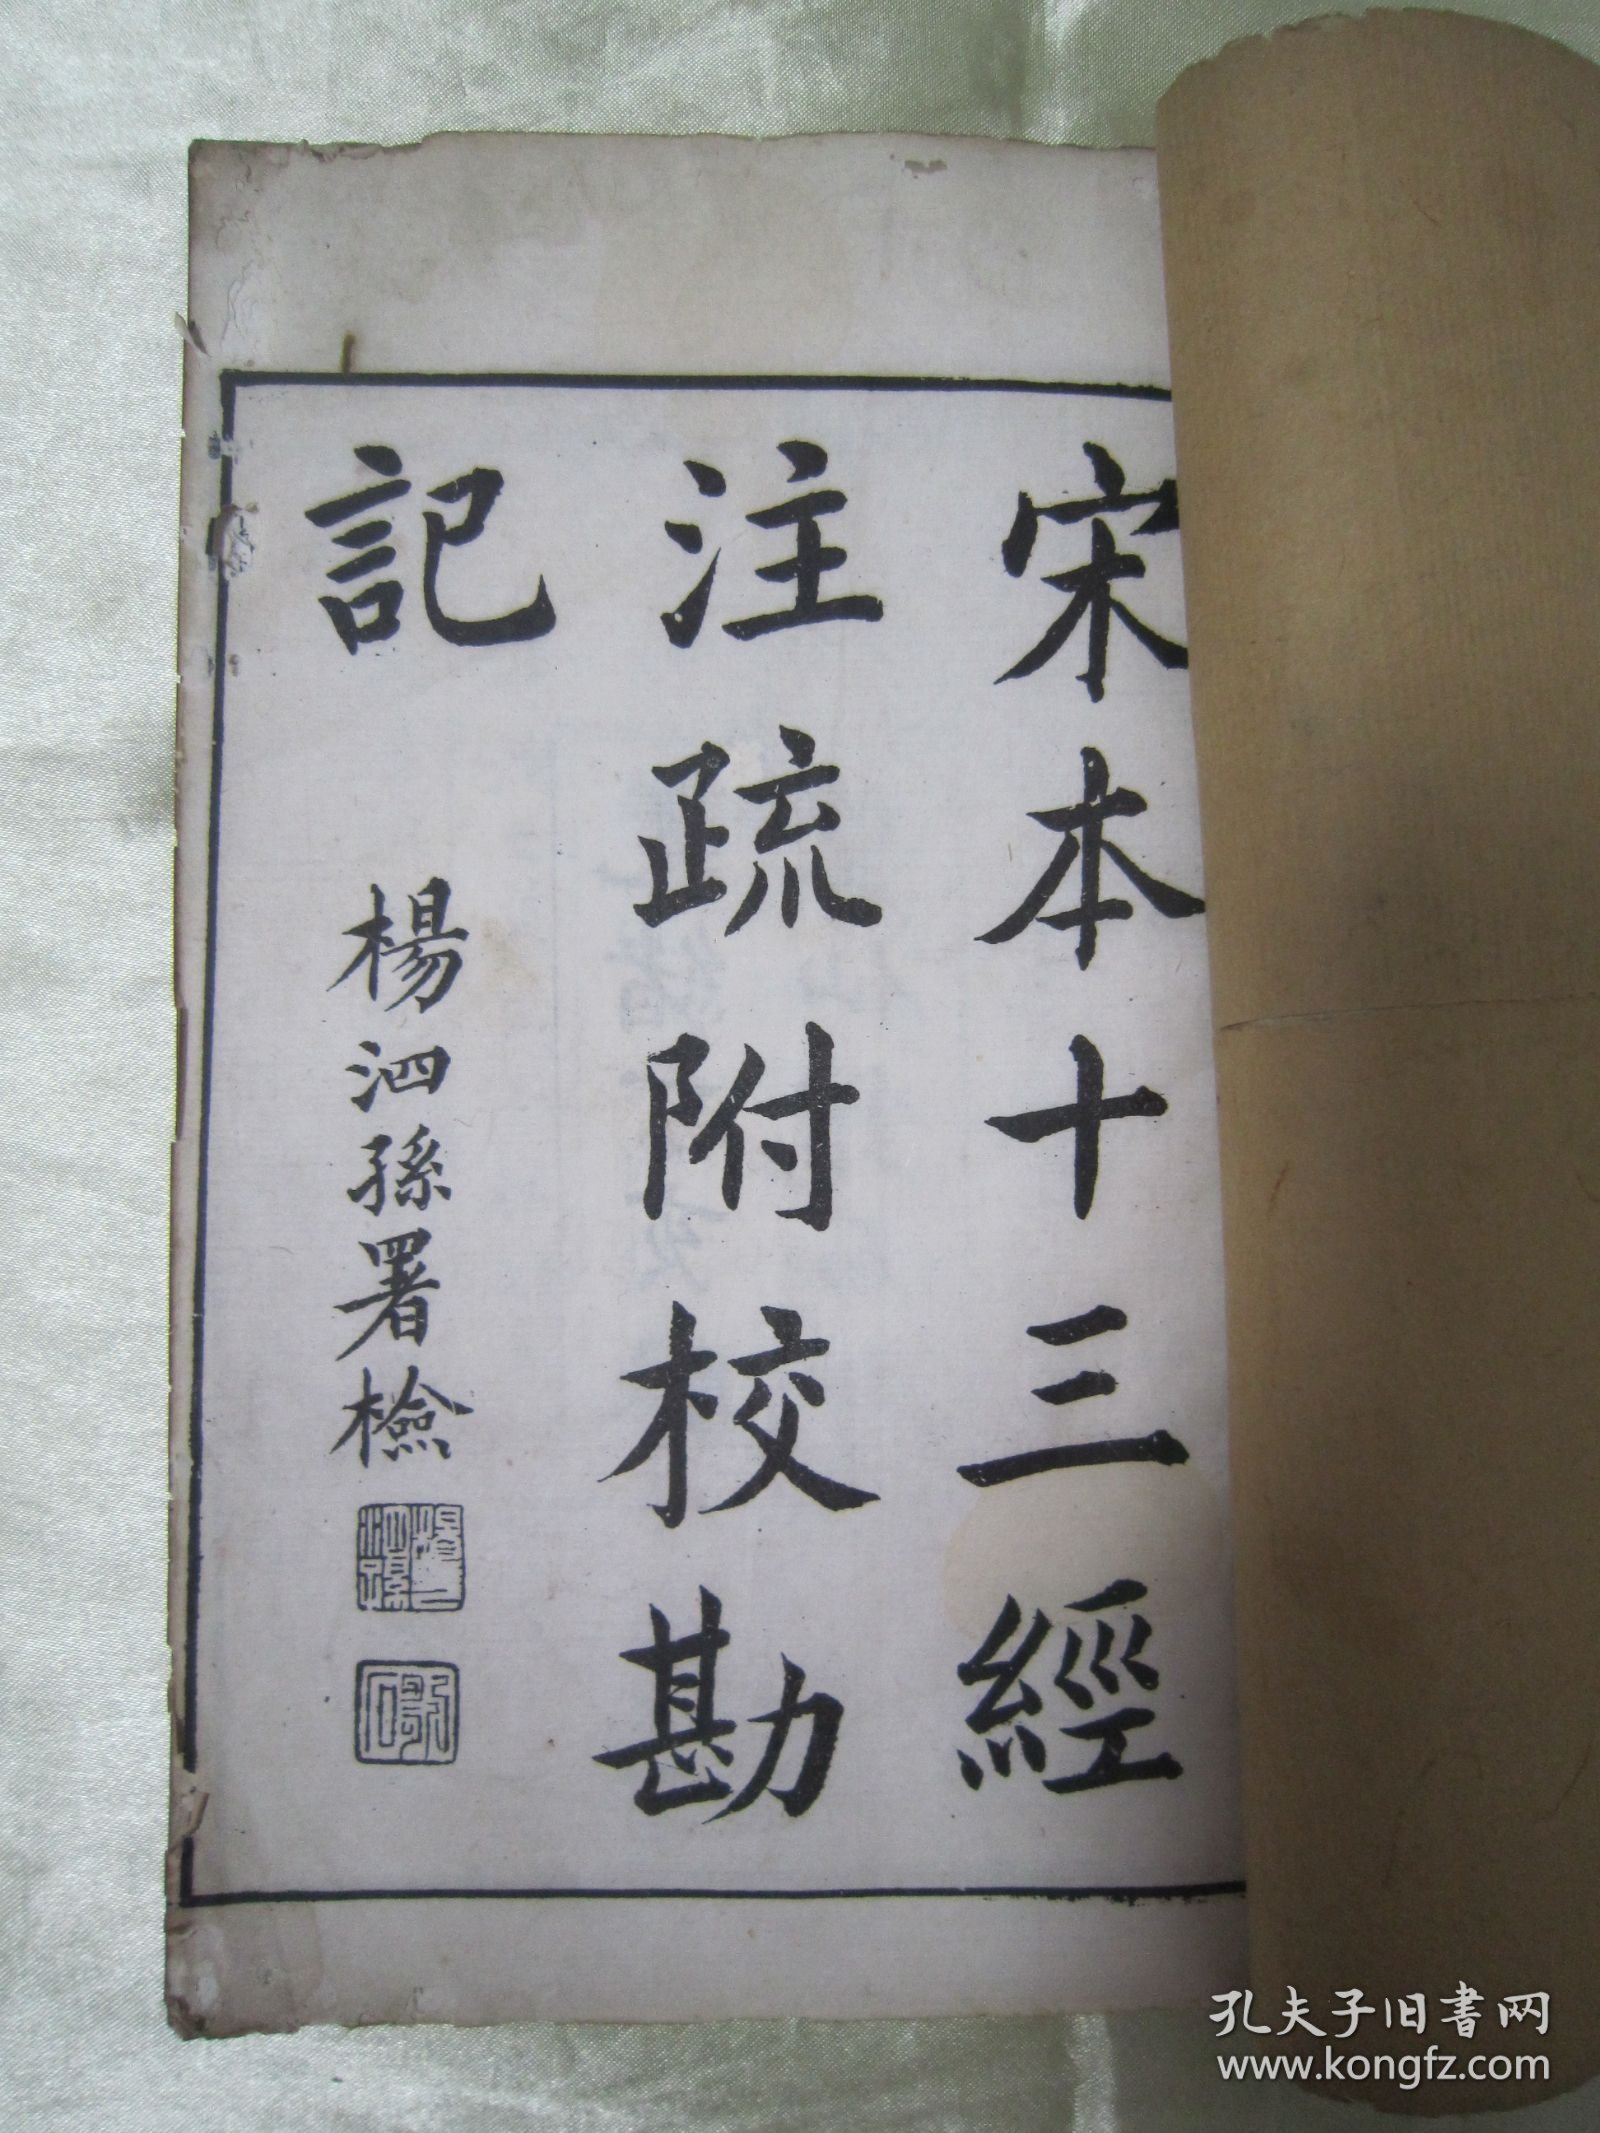 宋本十三經
注疏附校勘
記
楊泗孫署檢
楊泗孫
孔夫子旧書网
www.kongfz.com